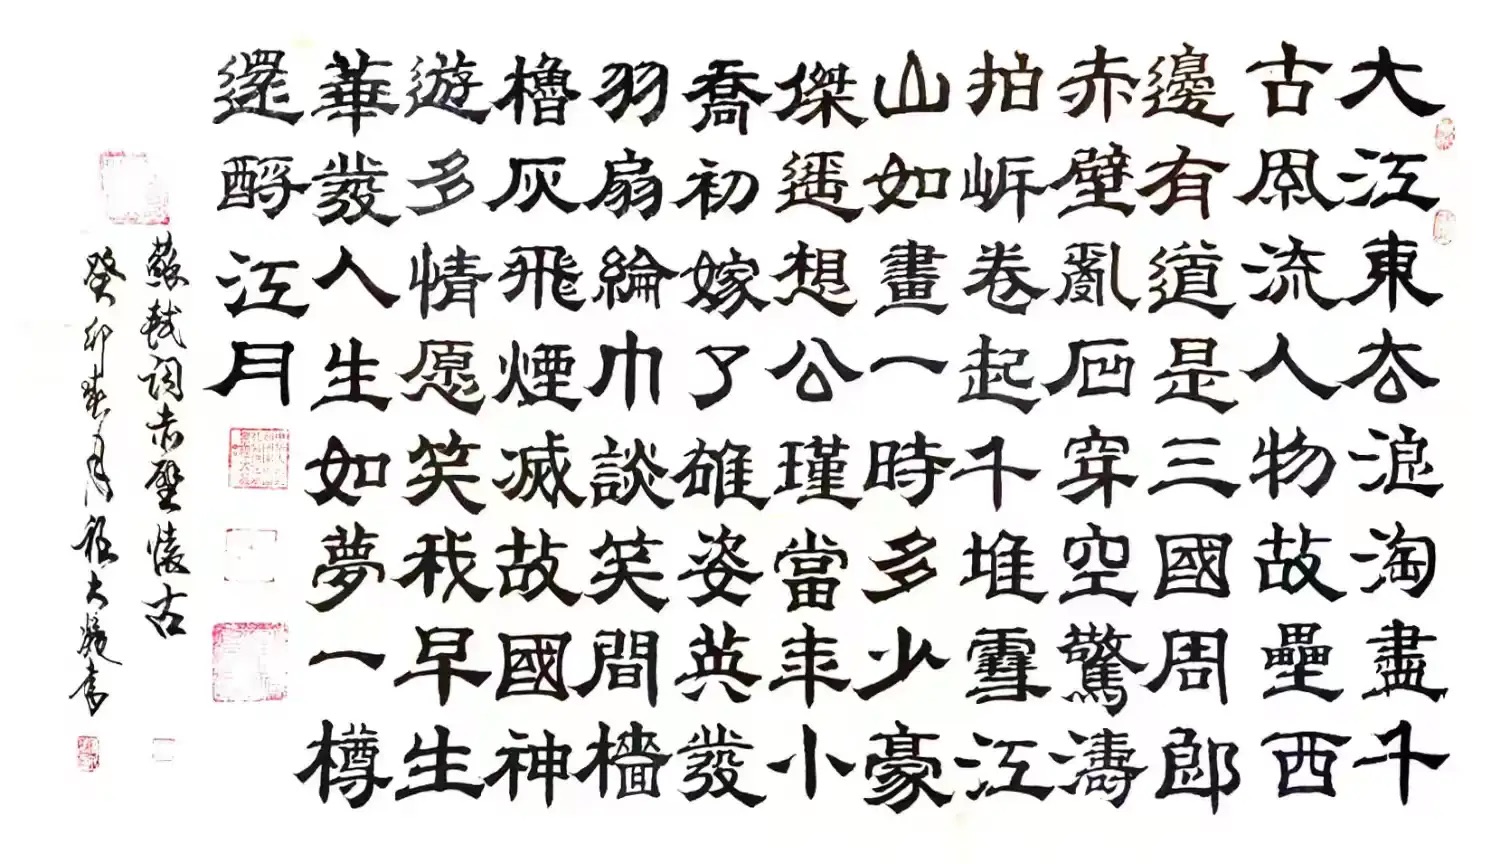 大江東去浪淘盡千
古風流人物故壘西
邊有道是三國周郎
赤壁亂石穿空驚濤
拍岸卷起千堆雪江
山如畫一時多少豪
傑遥想公瑾當年小
喬初嫁了雄姿英發
羽扇綸巾談笑間檣
櫓灰飛煙滅故國神
遊多情愿笑我早生
華發人生如夢一樽
還酹江月
蘇軾詞赤壁懷古
癸卯春月